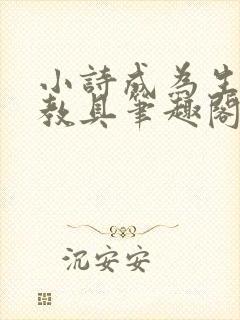 小詩成為生
教具筆趣閣
沉安安